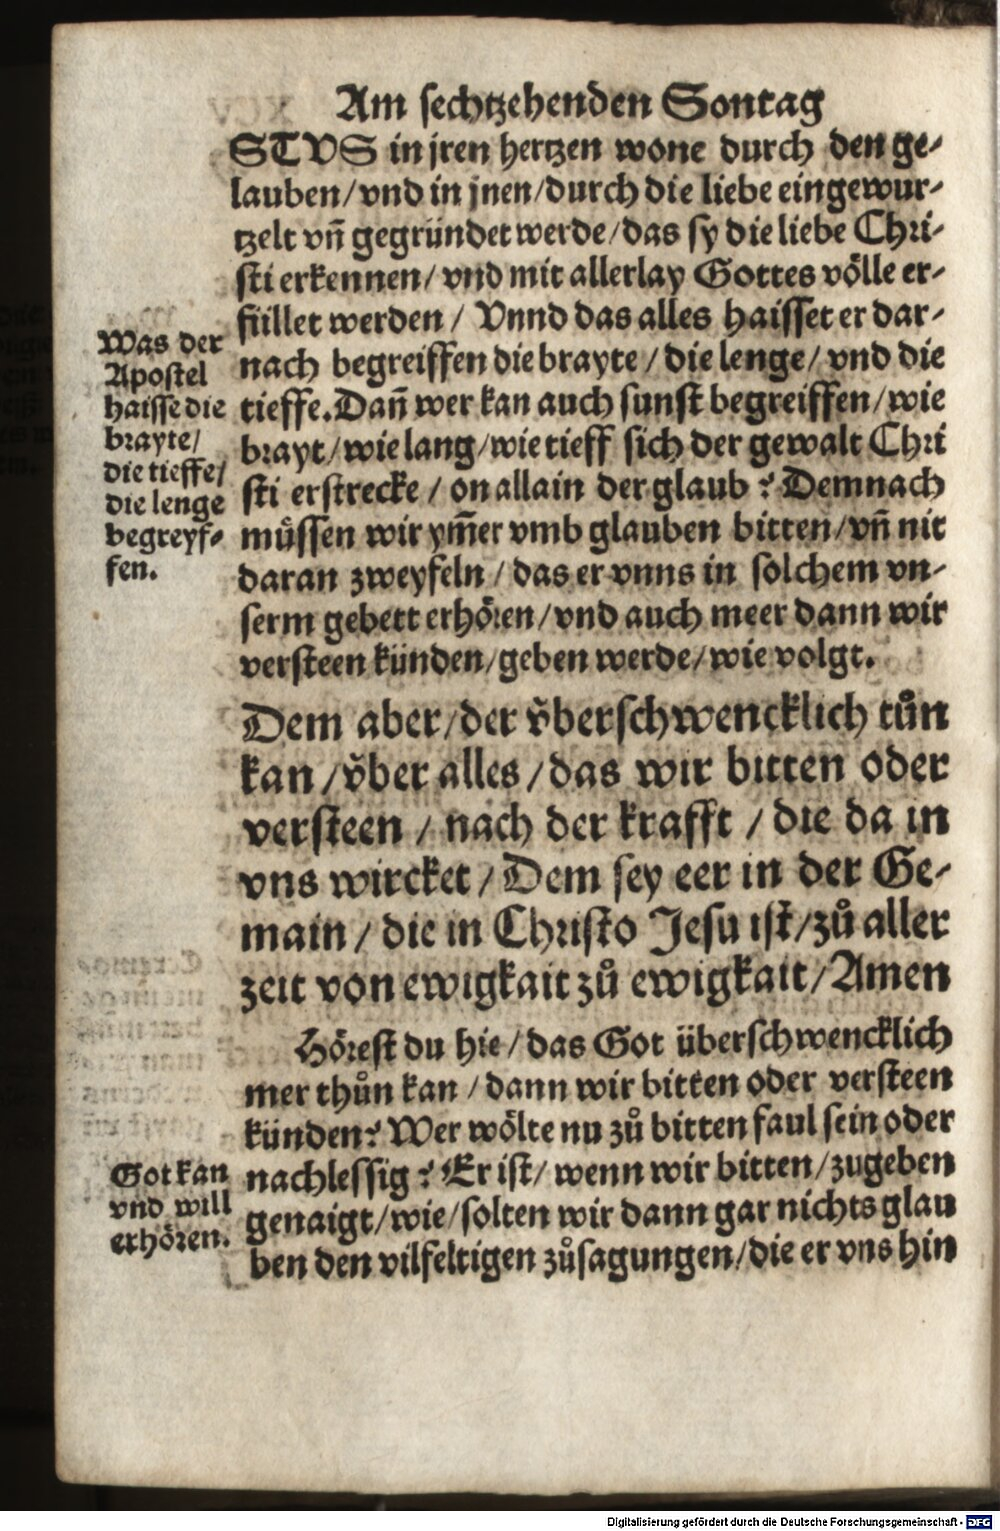 Am sechtzehenden Sontag
STVS in jren hertzen wone durch den ge-
lauben/vnd in jnen/durch die liebe eingewur-
tzelt vñ gegründet werde/das sy die liebe Chri-
sti erkennen/vnd mit allerlay Gottes völle er-
füllet werden/ Vnnd das alles haisset er dar-
nach begreiffen die brayte/die lenge/vnd die
tieffe.Dañ wer kan auch sunst begreiffen/wie
brayt/wie lang/wie tieff sich der gewalt Chri
sti erstrecke/on allain der glaub? Demnach
müssen wir ym̃er vmb glauben bitten/vñ nit
daran zweyfeln/das er vnns in solchem vn-
serm gebett erhören/vnd auch meer dann wir
versteen künden/geben werde/wie volgt.
Was der
Apostel
haisse die
brayte/
die tieffe/
die lenge
begreyf-
fen.
Dem aber/der vͤberschwencklich tůn
kan/vͤber alles/das wir bitten oder
versteen/nach der krafft/die da in
vns wircket/Dem sey eer in der Ge-
main/die in Christo Jesu ist/zů aller
zeit von ewigkait zů ewigkait/Amen
Hörest du hie/das Got überschwencklich
mer thůn kan/dann wir bitten oder versteen
künden? Wer wölte nu zů bitten faul sein oder
nachlessig? Er ist/wenn wir bitten/zugeben
genaigt/wie/solten wir dann gar nichts glau
ben den vilfeltigen zůsagungen/die er vns hin
Got kan
vnd will
erhören.
Digitalisierung gefördert durch die Deutsche Forschungsgemeinschaft - DFG